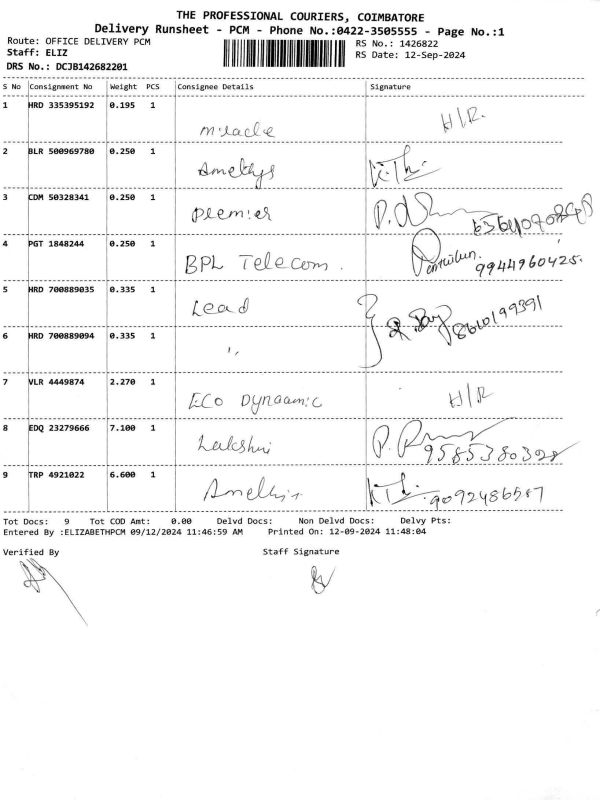 THE PROFESSIONAL COURIERS, COIMBATORE
Delivery Runsheet - PCM - Phone No.:0422-3505555 - Page No.:1
Route: OFFICE DELIVERY PCM RS No.: 1426822
Staff: ELIZ RS Date: 12-Sep-2024
DRS No.: DCJB142682201
S No Consignment No Weight PCS Consignee Details Signature
1 HRD 335395192 0.195 1 Miracle H/R.
2 BLR 500969780 0.250 1 Amethys
3 CDM 50328341 0.250 1 Premier
4 PGT 1848244 0.250 1 BPL Telecom. 9944960425.
5 HRD 700889035 0.335 1 Lead 8610199391
6 HRD 700889094 0.335 1 "
7 VLR 4449874 2.270 1 ECO Dynaamic H/R
8 EDQ 23279666 7.100 1 Lakshmi 9585380328
9 TRP 4921022 6.600 1 9092486587
Tot Docs: 9 Tot COD Amt: 0.00 Delvd Docs: Non Delvd Docs: Delvy Pts:
Entered By :ELIZABETHPCM 09/12/2024 11:46:59 AM Printed On: 12-09-2024 11:48:04
Verified By Staff Signature